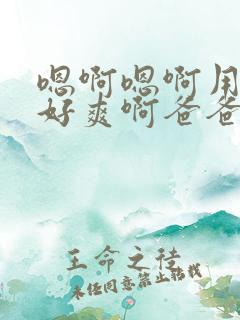 嗯啊嗯啊用
好爽啊爸爸
王命之徒
未经同意禁止转载